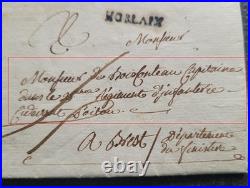 MORLAIX
Monsieur
Monsieur de Capitaine
dans le Regiment d'infanterie
Poitou
a Brest Département
du finistere